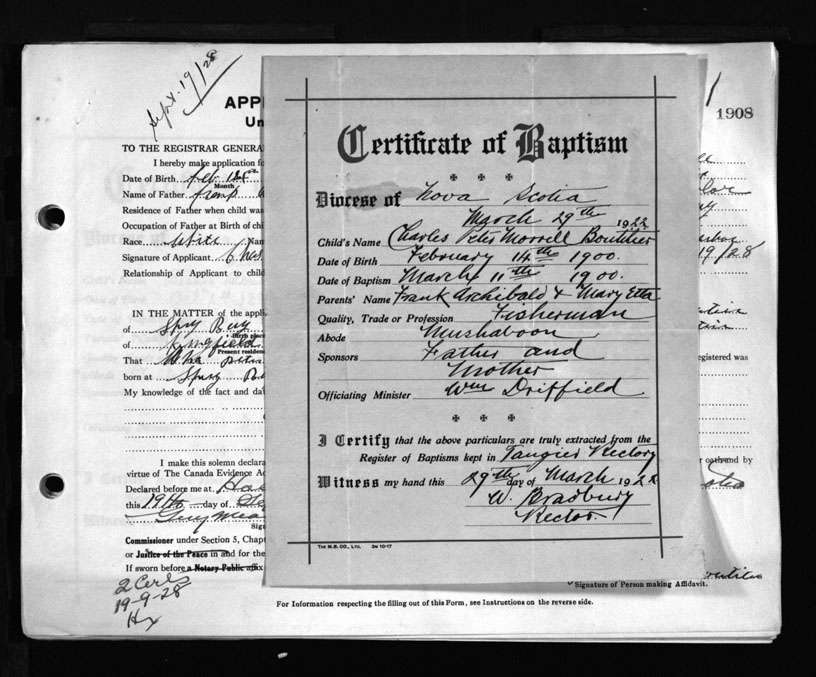 Sept. 19/28
APP
Un
1908
TO THE REGISTRAR GENERA
I hereby make application fo
Date of Birth Feb 14th
Month
Name of Father Frank
Residence of Father when child was
Occupation of Father at Birth of chi
Race White
Signature of Applicant Chas
Relationship of Applicant to child
19/28
IN THE MATTER of the applic
of Spry Bay
Birth place
of Kingfield
Present residen
That
born at Spry Ba
My knowledge of the fact and dat
egistered was
I make this solemn declara
virtue of The Canada Evidence Ac
Declared before me at
this 19th day of Se
Sign
Commissioner under Section 5, Chapt
or Justice of the Peace in and for the
If sworn before a Notary Public affix
or oath and by
2 Certs
19-9-28
Hx
Signature of Person making Affidavit.
For Information respecting the filling out of this Form, see Instructions on the reverse side.
Certificate of Baptism
Diocese of Nova Scotia
March 29th 1922
Child's Name Charles Peter Morrell Boutilier
Date of Birth February 14th 1900.
Date of Baptism March 11th 1900.
Parents' Name Frank Archibald & Mary Etta
Quality, Trade or Profession Fisherman
Abode Mushaboon
Sponsors Father and
Mother
Officiating Minister Wm Driffield
I Certify that the above particulars are truly extracted from the
Register of Baptisms kept in Tangier Rectory
Witness my hand this 29th day of March 1922
W. Bradbury
Rector.
THE M.B. CO., LTD. 3M 10-17